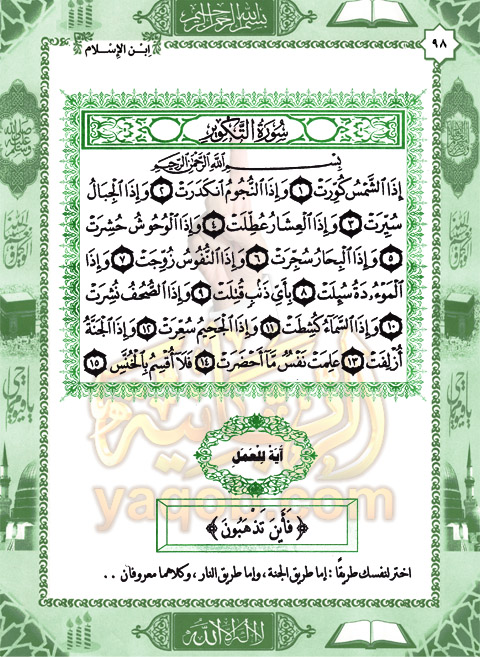 بسم الله الرحمن الرحيم
٩٨
ابن الإسلام
سُورَةُ التَّكْوِيرِ
بِسْمِ اللَّهِ الرَّحْمَنِ الرَّحِيمِ
إِذَا الشَّمْسُ كُوِّرَتْ ١ وَإِذَا النُّجُومُ انكَدَرَتْ ٢ وَإِذَا الْجِبَالُ
سُيِّرَتْ ٣ وَإِذَا الْعِشَارُ عُطِّلَتْ ٤ وَإِذَا الْوُحُوشُ حُشِرَتْ
٥ وَإِذَا الْبِحَارُ سُجِّرَتْ ٦ وَإِذَا النُّفُوسُ زُوِّجَتْ ٧ وَإِذَا
الْمَوْءُودَةُ سُئِلَتْ ٨ بِأَيِّ ذَنْبٍ قُتِلَتْ ٩ وَإِذَا الصُّحُفُ نُشِرَتْ
١٠ وَإِذَا السَّمَاءُ كُشِطَتْ ١١ وَإِذَا الْجَحِيمُ سُعِّرَتْ ١٢ وَإِذَا الْجَنَّةُ
أُزْلِفَتْ ١٣ عَلِمَتْ نَفْسٌ مَّا أَحْضَرَتْ ١٤ فَلَا أُقْسِمُ بِالْخُنَّسِ ١٥
آيَةٌ لِلْعَمَلِ
yaqob.com
﴿ فَأَيْنَ تَذْهَبُونَ ﴾
اختر لنفسك طريقًا : إما طريق الجنة ، وإما طريق النار ، وكلاهما معروفان ..
لا إله إلا الله